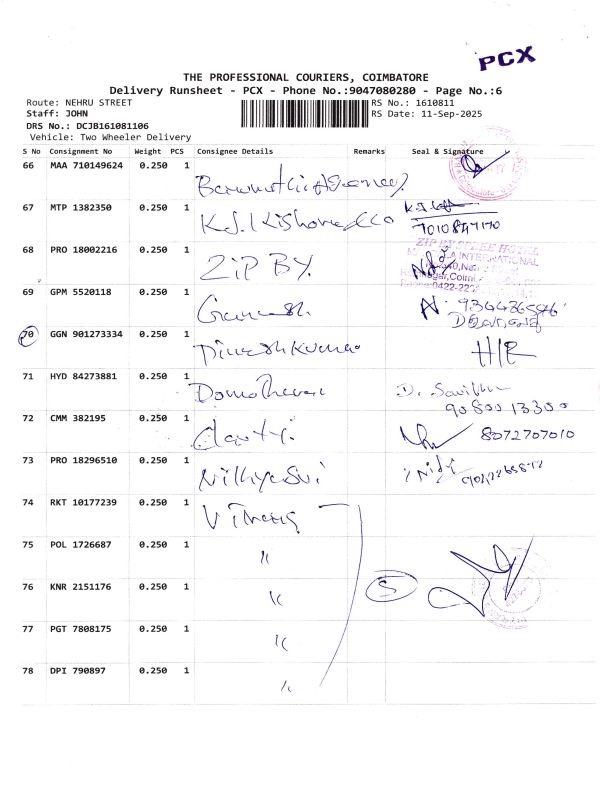 PCX
THE PROFESSIONAL COURIERS, COIMBATORE
Delivery Runsheet - PCX - Phone No.:9047080280 - Page No.:6
Route: NEHRU STREET RS No.: 1610811
Staff: JOHN RS Date: 11-Sep-2025
DRS No.: DCJB161081106
Vehicle: Two Wheeler Delivery
S No Consignment No Weight PCS Consignee Details Remarks Seal & Signature
66 MAA 710149624 0.250 1
67 MTP 1382350 0.250 1 K.J. Kishore & Co
7010847170
68 PRO 18002216 0.250 1 ZiP BY. ZIP BY HOTEL
INTERNATIONAL
69 GPM 5520118 0.250 1 Ganesh. 9344365946
70 GGN 901273334 0.250 1 Dineshkumar H/R
71 HYD 84273881 0.250 1 D.
90800 13300
72 CMM 382195 0.250 1 8072707010
73 PRO 18296510 0.250 1 Nithyasri Nidy
74 RKT 10177239 0.250 1
75 POL 1726687 0.250 1 "
76 KNR 2151176 0.250 1 " 5
77 PGT 7808175 0.250 1 "
78 DPI 790897 0.250 1 "